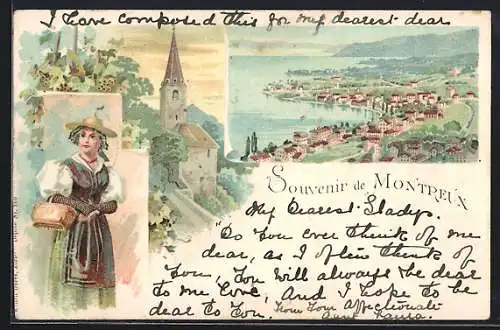 I have composed this for my dearest dear
Souvenir de MONTREUX
My Dearest Gladys.
"Do you ever think of me
dear, as I often think of
you, You will always be dear
to me Love, And I hope to be
dear to You. From Your Affectionate
Aunt Laura.